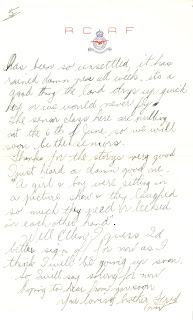 5
R C A F
has been so unsettled, it has
rained damn near all week. its a
good thing the land drys up quick
here or we would never fly.
The senior class here are pulling
out the 6 th of June, so we will
soon be the seniors.
Thanks for the storys very good
Just heard a damn good one.
"A girl & boy were sitting in
a picture show & they laughed
so much they peed or leaked
in each others hand".
Well Ellen I guess I'd
better sign off for now as I
think I will be going up soon.
So I will say so long for now
Hoping to hear from you soon
Your loving brother Fred